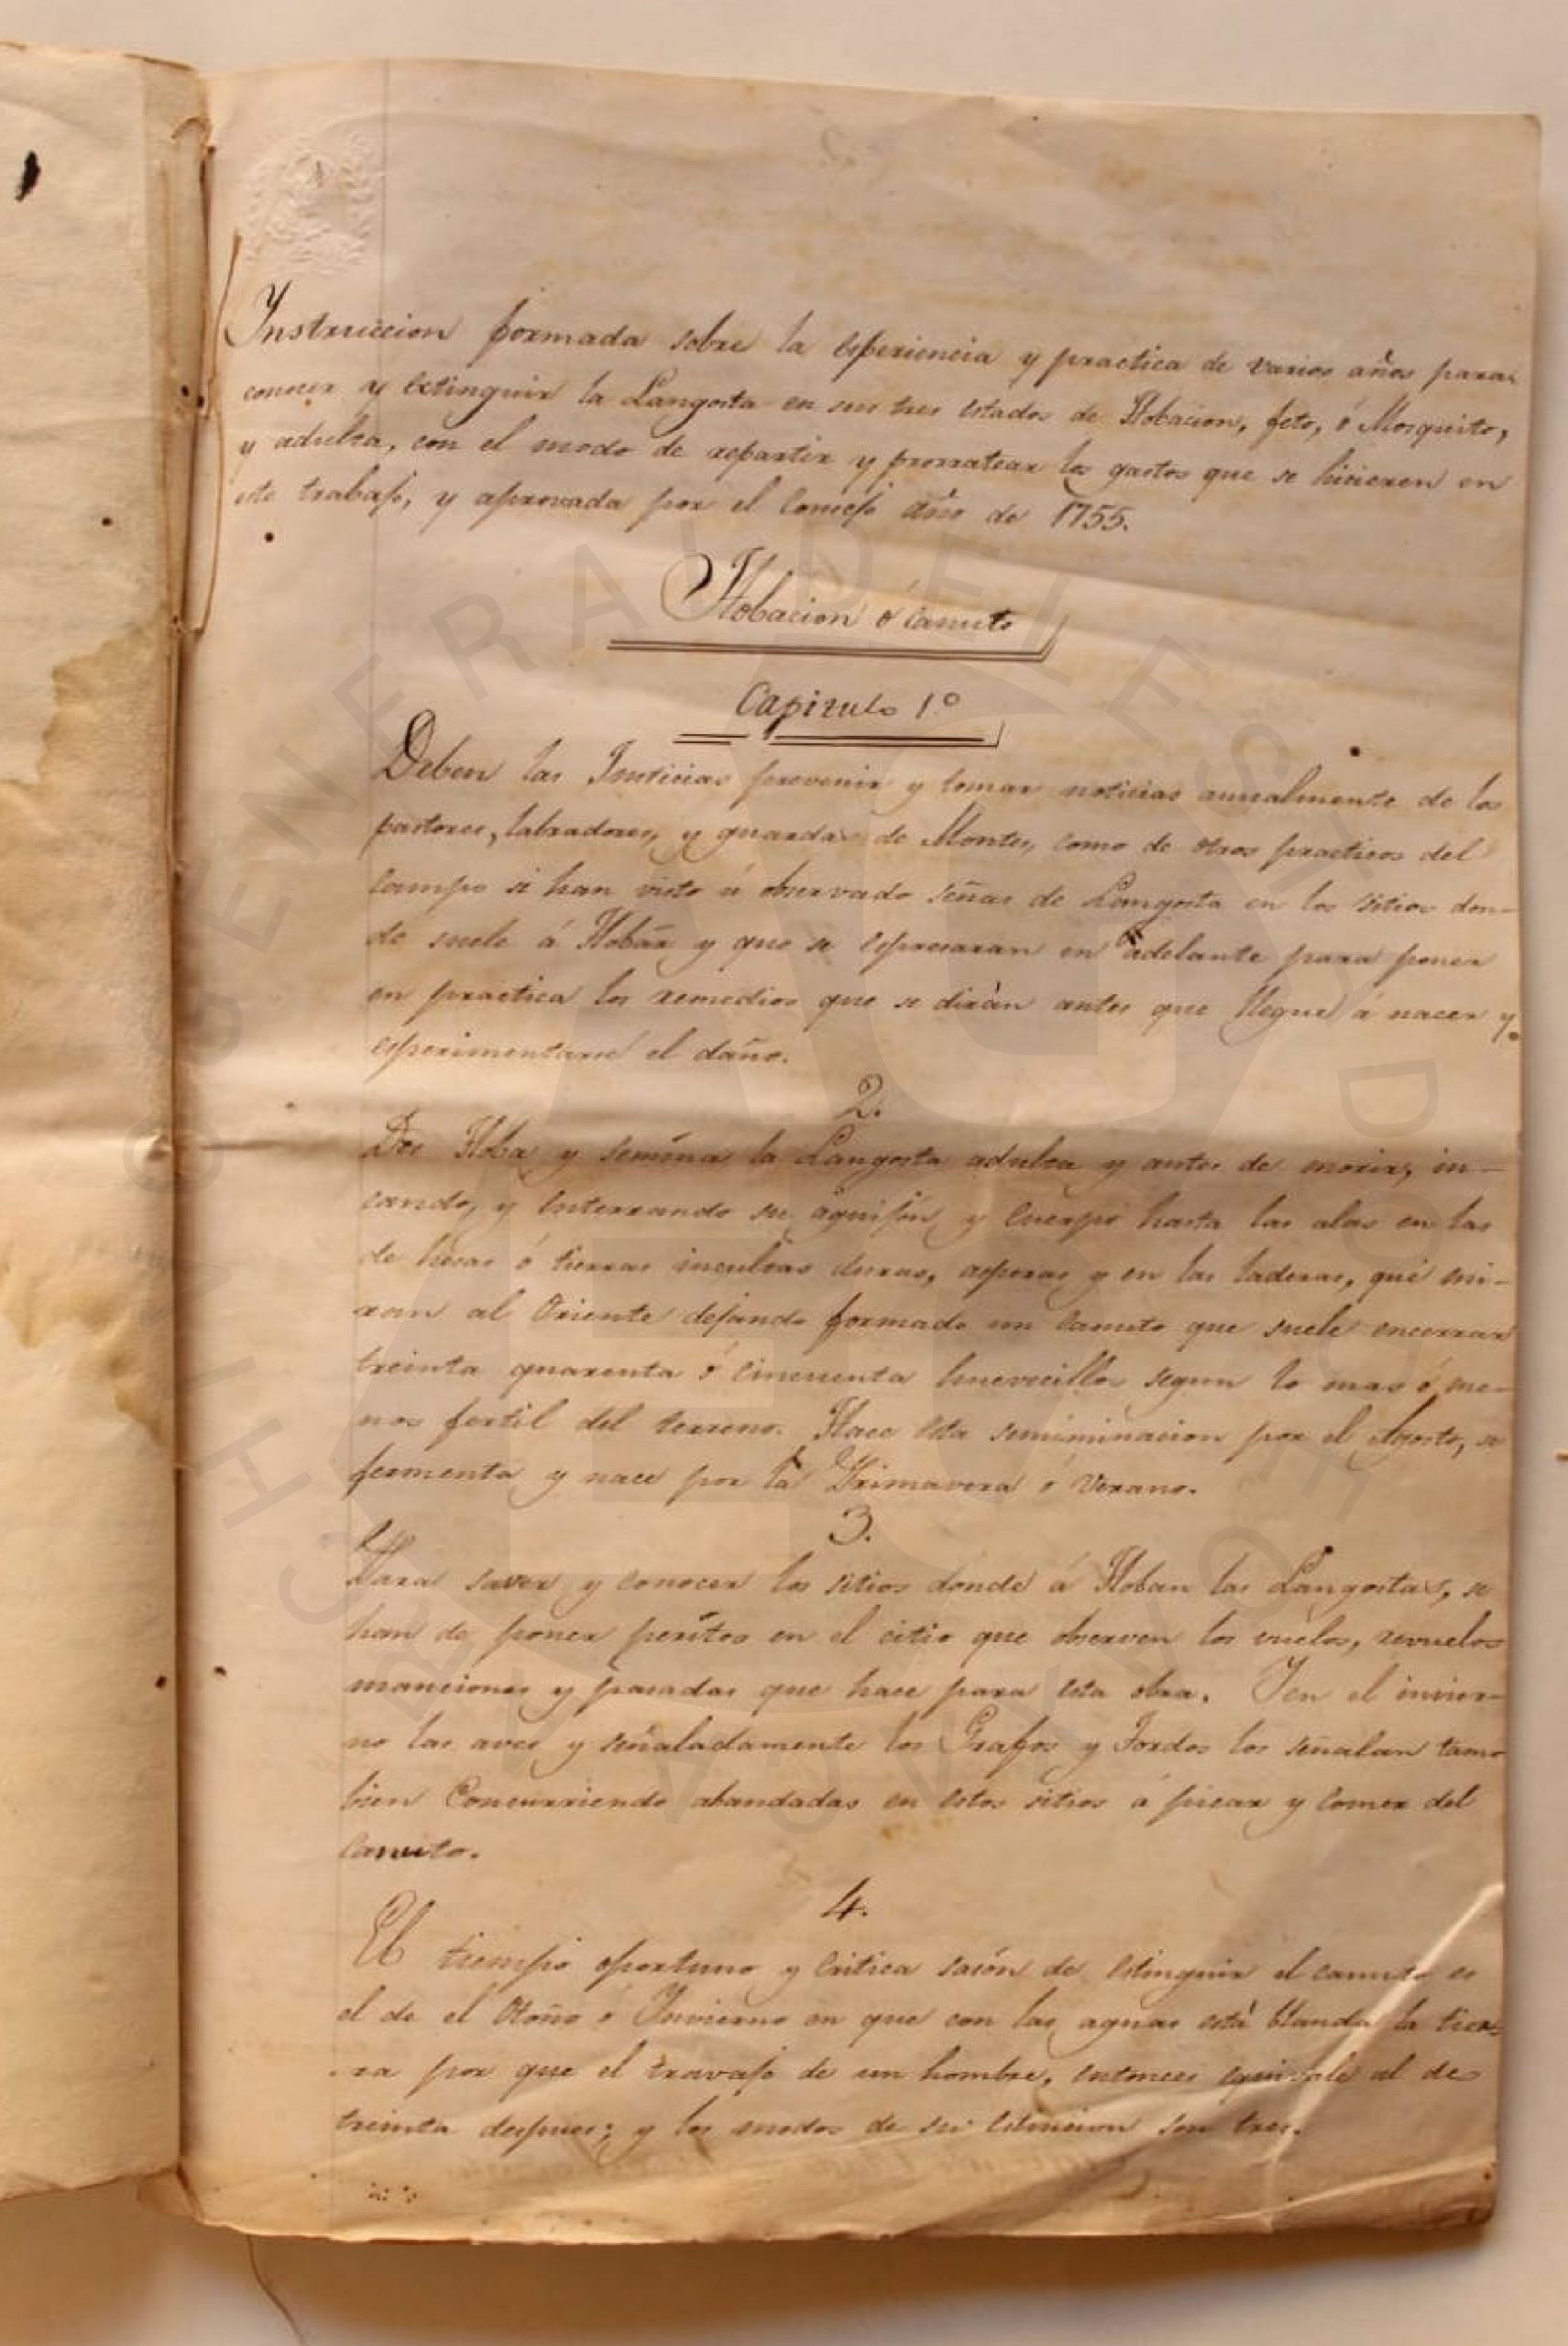 Instruccion formada sobre la esperiencia y practica de varios años para
conocer y estinguir la Langosta en sus tres estados de Hobacion, feto, ó Mosquito,
y adulta, con el modo de repartir y prorratear los gastos que se hicieren en
este trabajo, y aprovada por el Consejo año de 1755.
Hobacion ó Canuto
Capitulo 1.º
Deben las Justicias prevenir y tomar noticias anualmente de los
pastores, labradores, y guardas de Montes, como de otros practicos del
Campo si han visto ú observado señas de Langosta en los sitios don-
de suele á Hobar y que se espresaran en adelante para poner
en practica los remedios que se dirán antes que llegue á nacer y
esperimentarse el daño.
2.
Des Hoba y semina la Langosta adulta y antes de morir, in-
cando, y enterrando su aguijon y Cuerpo hasta las alas en las
de hesas ó tierras incultas duras, asperas y en las laderas, que mi-
ran al Oriente dejando formado un canuto que suele encerrar
treinta quarenta ó cincuenta huevecillos segun lo mas ó me-
nos fertil del terreno. Hace esta semiminacion por el Agosto, se
fermenta y nace por la Primavera ó Verano.
3.
Para saver y conocer los sitios donde á Hoban las Langostas, se
han de poner peritos en el citio que observen los vuelos, revuelos
manciones y pasadas que hace para esta obra. Y en el invier-
no las aves y señaladamente los Grajos y Tordos los señalan tam
bien Concurriendo abandadas en estos sitios á picar y comer del
Canuto.
4.
El tiempo oportuno y critica sasón de estinguir el canuto es
el de el Otoño ó Invierno en que con las aguas está blanda la tier-
ra por que el travajo de un hombre, entonces equivale al de
treinta despues; y los modos de su estincion son tres.
ARCHIVO GENERAL DEL ESTADO